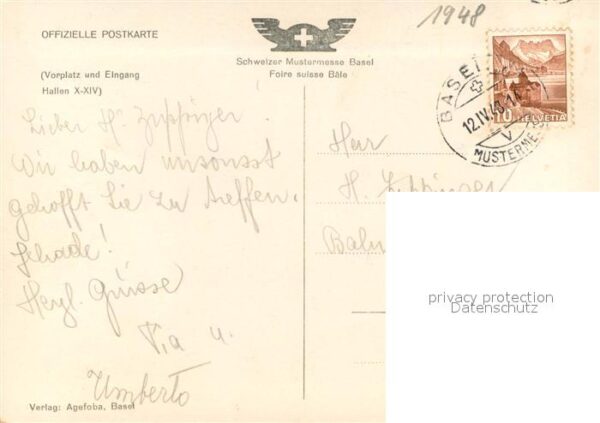 1948
OFFIZIELLE POSTKARTE
Schweizer Mustermesse Basel
Foire suisse Bâle
(Vorplatz und Eingang
Hallen X-XIV)
BASEL
12.IV.48.-1
MUSTERME
10 HELVETIA
Lieber Hr. Zuppinger!
Wir haben umsonst
gehofft Sie zu treffen.
Schade!
Herzl. Grüsse
Pia u.
Umberto
Herr
H. Zuppinger
Bahn
privacy protection
Datenschutz
Verlag: Agefoba, Basel